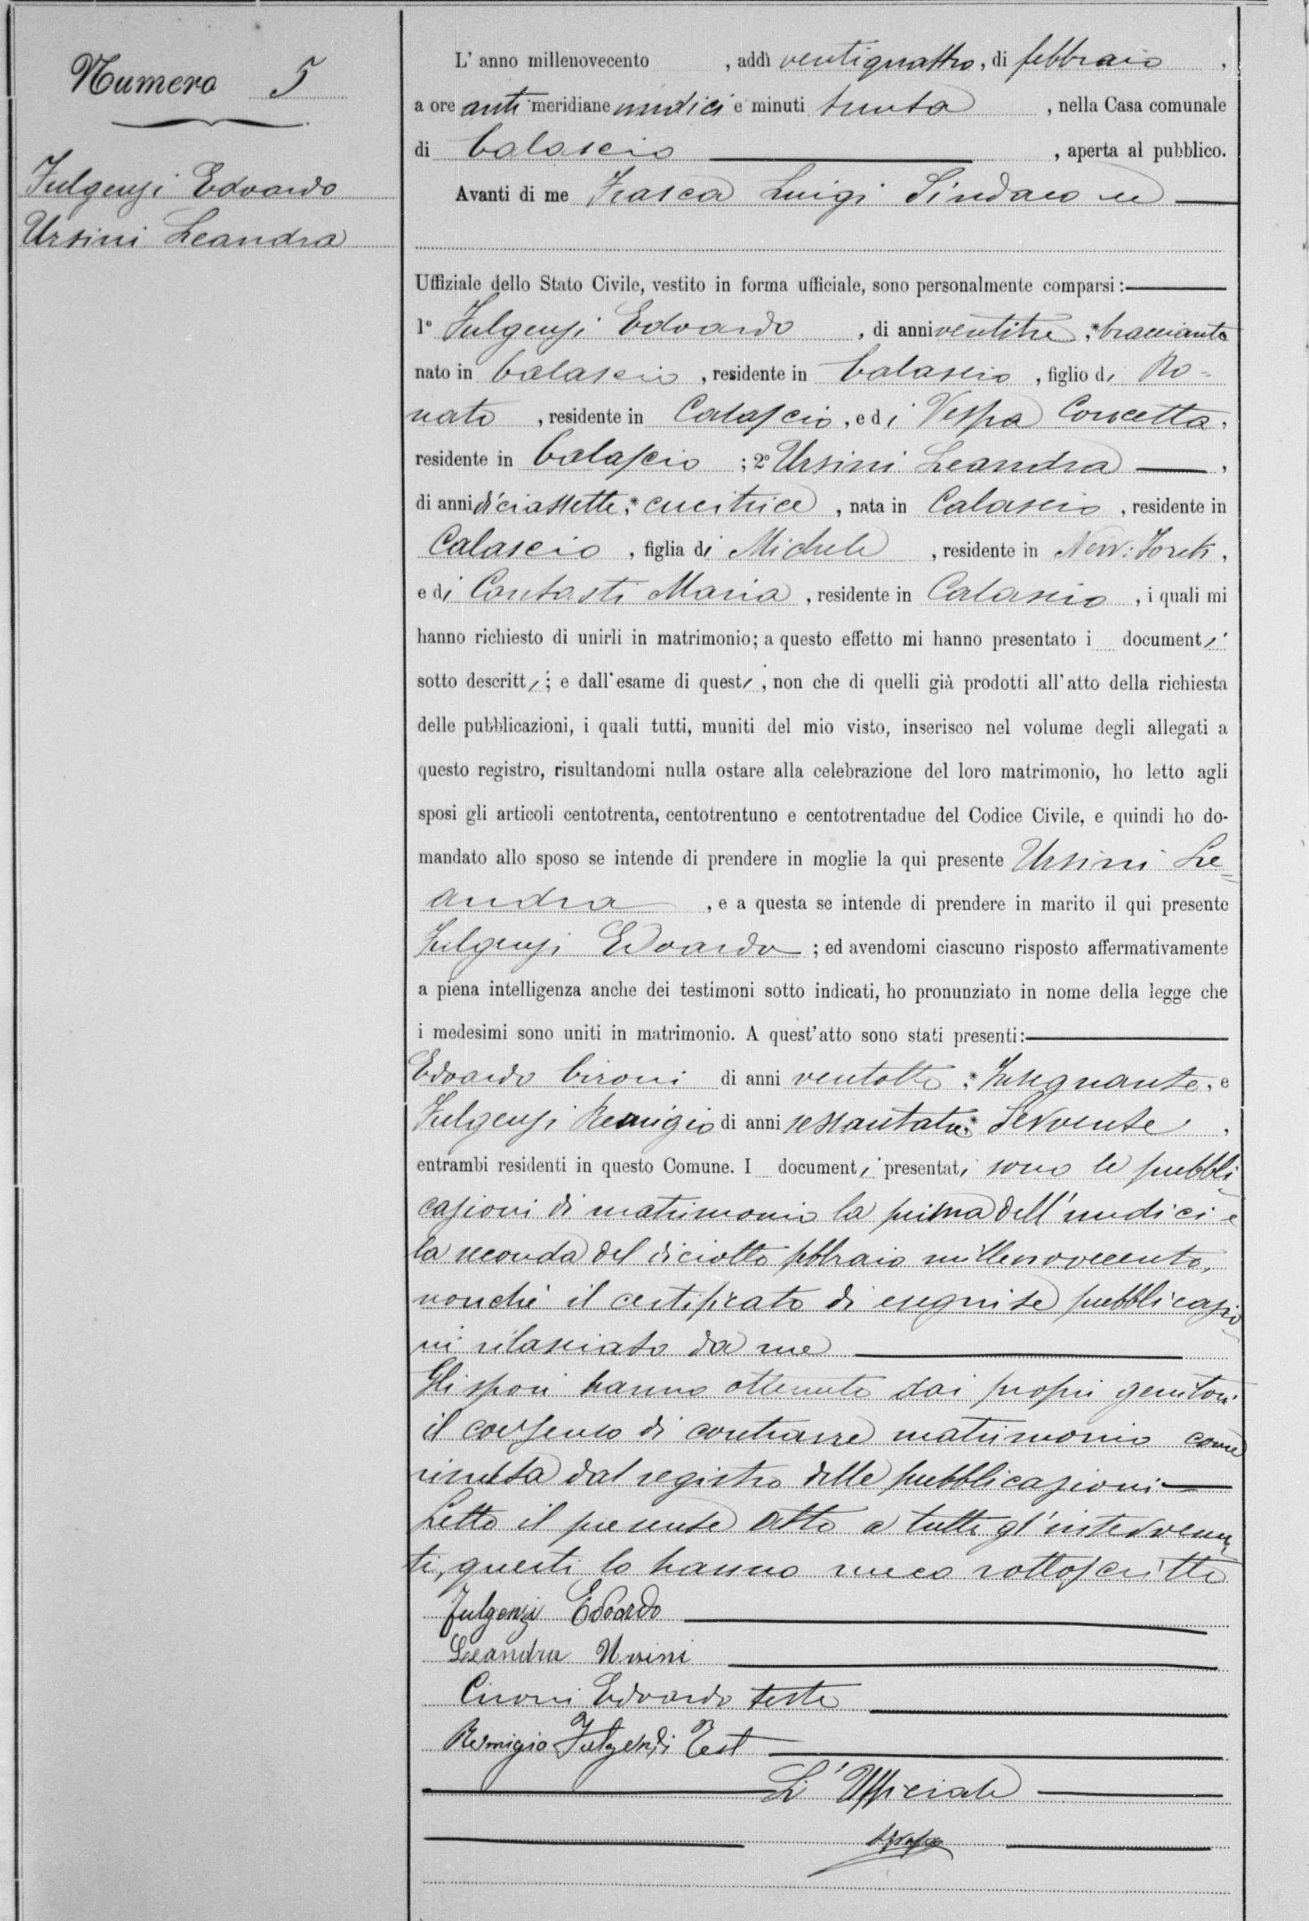 Numero 5
Fulgenzi Edoardo
Ursini Leandra
L' anno millenovecento , addì ventiquattro, di febbraio ,
a ore anti meridiane undici e minuti trenta , nella Casa comunale
di Calascio , aperta al pubblico.
Avanti di me Frasca Luigi Sindaco ed
Uffiziale dello Stato Civile, vestito in forma ufficiale, sono personalmente comparsi:
1° Fulgenzi Edoardo , di anni ventitre, * bracciante
nato in Calascio , residente in Calascio , figlio di Do=
nato , residente in Calascio , e di Vespa Concetta,
residente in Calascio ; 2° Ursini Leandra ,
di anni diciassette, * cucitrice , nata in Calascio , residente in
Calascio , figlia di Michele , residente in New: York,
e di Contasti Maria , residente in Calascio , i quali mi
hanno richiesto di unirli in matrimonio; a questo effetto mi hanno presentato i documenti
sotto descritti; e dall'esame di questi, non che di quelli già prodotti all'atto della richiesta
delle pubblicazioni, i quali tutti, muniti del mio visto, inserisco nel volume degli allegati a
questo registro, risultandomi nulla ostare alla celebrazione del loro matrimonio, ho letto agli
sposi gli articoli centotrenta, centotrentuno e centotrentadue del Codice Civile, e quindi ho do-
mandato allo sposo se intende di prendere in moglie la qui presente Ursini Le=
andra , e a questa se intende di prendere in marito il qui presente
Fulgenzi Edoardo ; ed avendomi ciascuno risposto affermativamente
a piena intelligenza anche dei testimoni sotto indicati, ho pronunziato in nome della legge che
i medesimi sono uniti in matrimonio. A quest'atto sono stati presenti:
Edoardo Cironi di anni ventotto, * Insegnante, e
Fulgenzi Remigio di anni sessantatre * Servente ,
entrambi residenti in questo Comune. I documenti presentati sono le pubbli
cazioni di matrimonio la prima dell'undici e
la seconda del diciotto febbraio millenovecento,
nonché il certificato di eseguite pubblicazio
ni rilasciato da me
Gli sposi hanno ottenuto dai propri genitori
il consenso di contrarre matrimonio come
risulta dal registro delle pubblicazioni
Letto il presente atto a tutti gl'intervenu
ti, questi lo hanno meco sottoscritto
Fulgenzi Edoardo
Leandra Ursini
Cironi Edoardo teste
Remigio Fulgenzi Test
L'Ufficiale